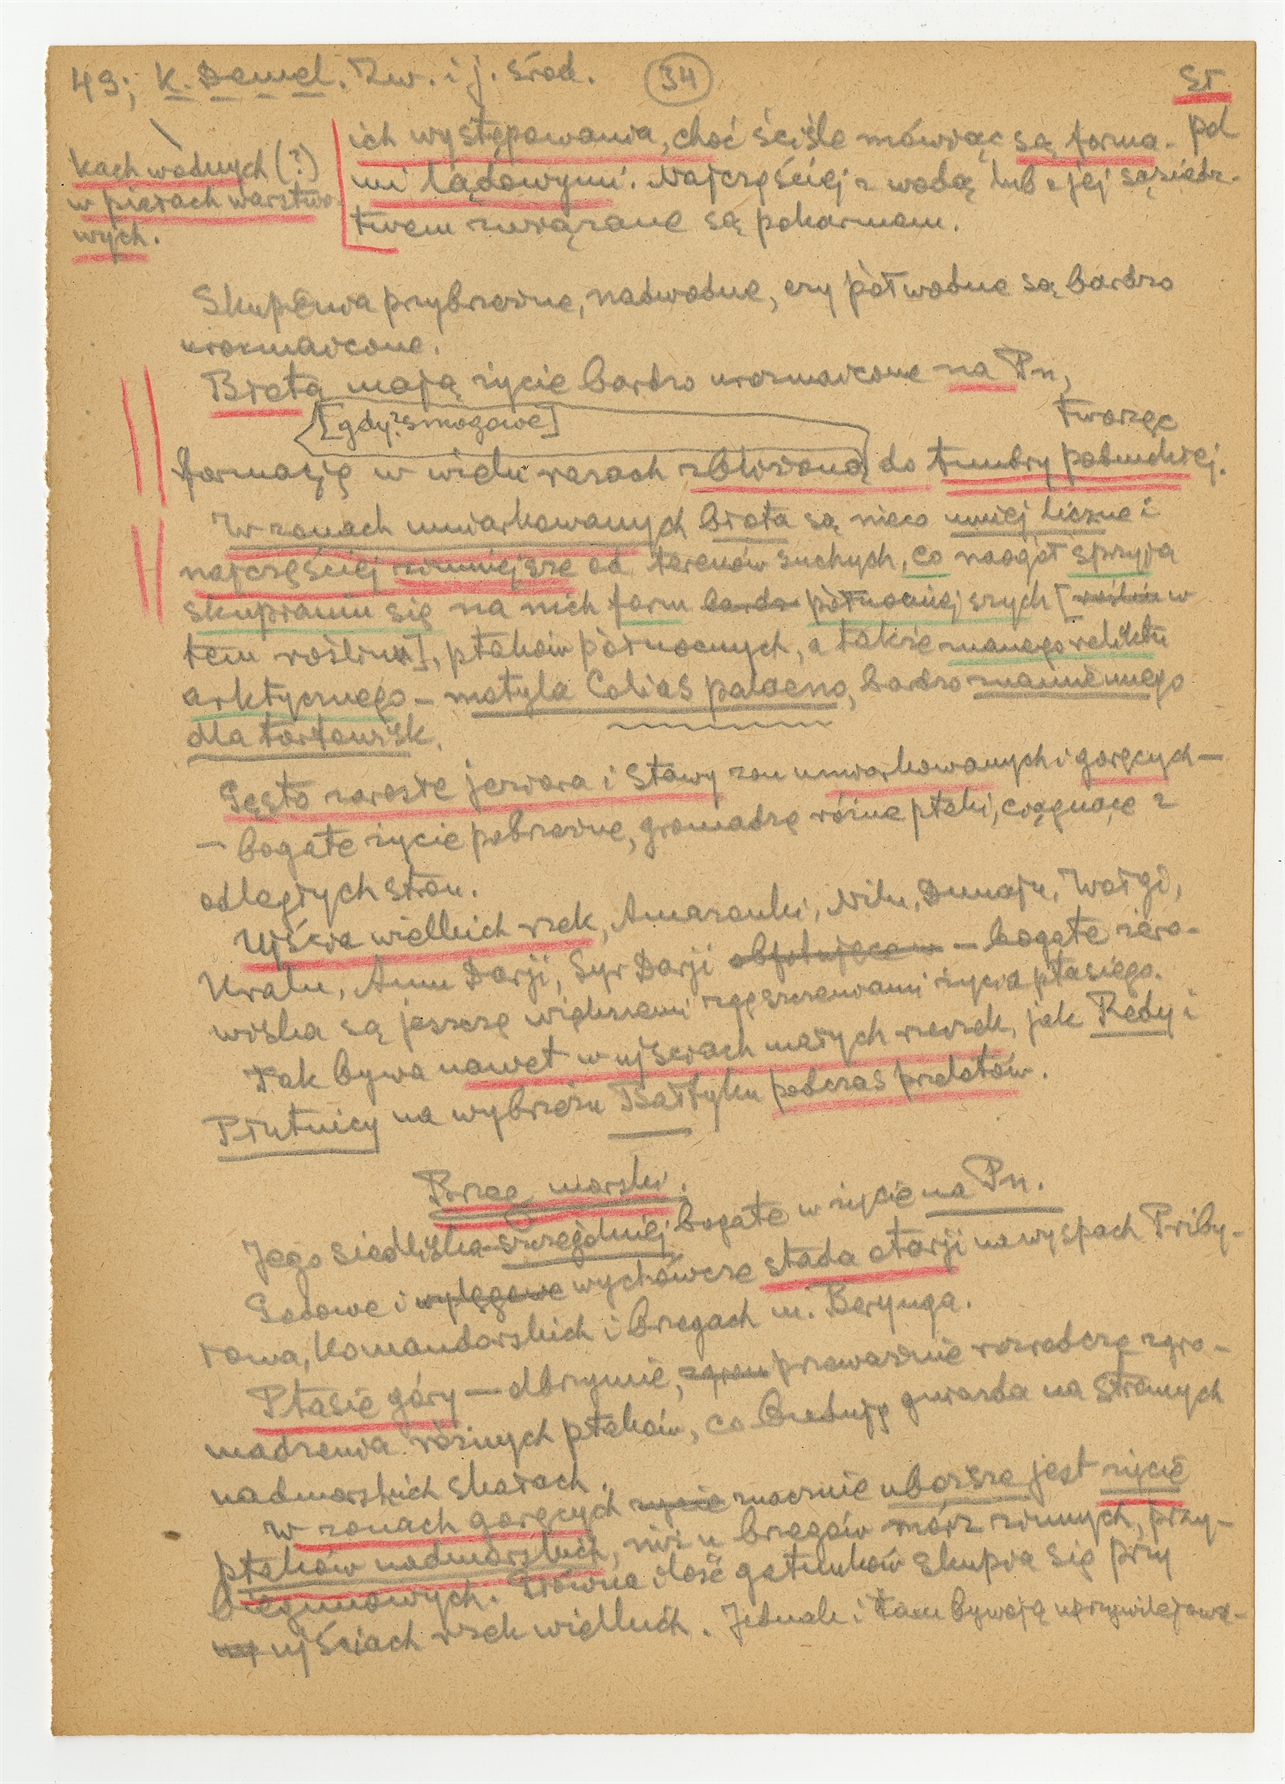 49; K. Demel. Zw. i j. środ. 34 St
kach wodnych (?)
w pierach warstwo-
wych.
ich występowania, choć ściśle mówiąc są forma- pd
mi lądowymi. Najczęściej z wodą lub z jej sąsiedz-
twem związane są pokarmem.
Skupienia przybrzeżne, nadwodne, czy półwodne są bardzo
urozmaicone.
Błota mają życie bardzo urozmaicone na Pn,
[gdy? smogowe] tworząc
formację w wielu razach zbliżoną do tundry pobudniej.
W zonach umiarkowanych błota są nieco mniej liczne i
najczęściej zimniejsze od terenów suchych, co naogół sprzyja
skupianiu się na nich form bardz północniejszych [roślin w
tem roślin], ptaków północnych, a także znanego reliktu
arktycznego – motyla Colias palaeno, bardzo znamiennego
dla torfowisk.
Gęsto zarosłe jeziora i stawy zon umiarkowanych i gorących –
– bogate życie pobrzeżne, gromadzą różne ptaki, ciągnące z
odległych stron.
Ujścia wielkich rzek, Amazonki, Nilu, Dunaju, Wołgi,
Uralu, Amu Darji, Syr Darji – bogate zaro-
wiska są jeszcze większemi zagęszczeniami życia ptasiego.
Tak bywa nawet w ujściach małych rzeczek, jak Redy i
Płutnicy na wybrzeżu Bałtyku podczas przelotów.
Brzeg morski.
Jego siedliska szczególniej bogate w życie na Pn.
Godowe i wylęgowe wychówcze stada otarji na wyspach Priby-
łowa, Komandorskich i brzegach m. Berynga.
Ptasie góry – olbrzymie, zgrom przeważnie rozrodcze zgro-
madzenia różnych ptaków, co budują gniazda na stromych
nadmorskich skałach.
W zonach gorących życie znacznie uboższe jest życie
ptaków nadmorskich, niż u brzegów mórz zimnych, przy-
biegunowych. Główna ilość gatunków skupia się przy
ujściach rzek wielkich. Jednak i tam bywają uprzywilejowa-